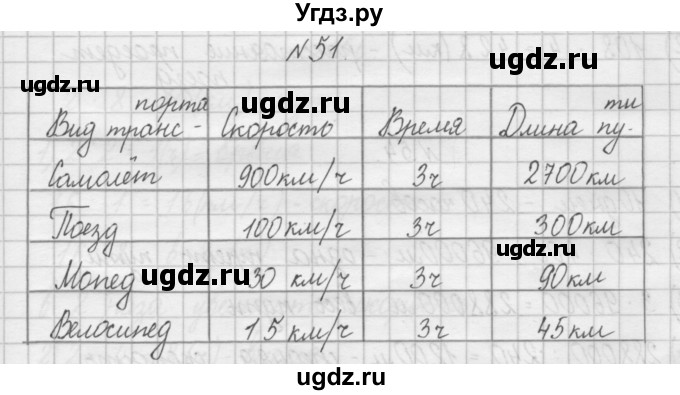 Угдз.ру
N 51.
Вид транс-порта Скорость Время Длина пу-ти
ugdz.ru ugdz.ru
Самолёт 900км/ч 3ч 2700км
ugdz.ru ugdz.ru
Поезд 100км/ч 3ч 300км
Мопед 30 км/ч 3ч 90км
ugdz.ru ugdz.ru
Велосипед 15 км/ч 3ч 45км
ugdz.ru
ugdz.ru